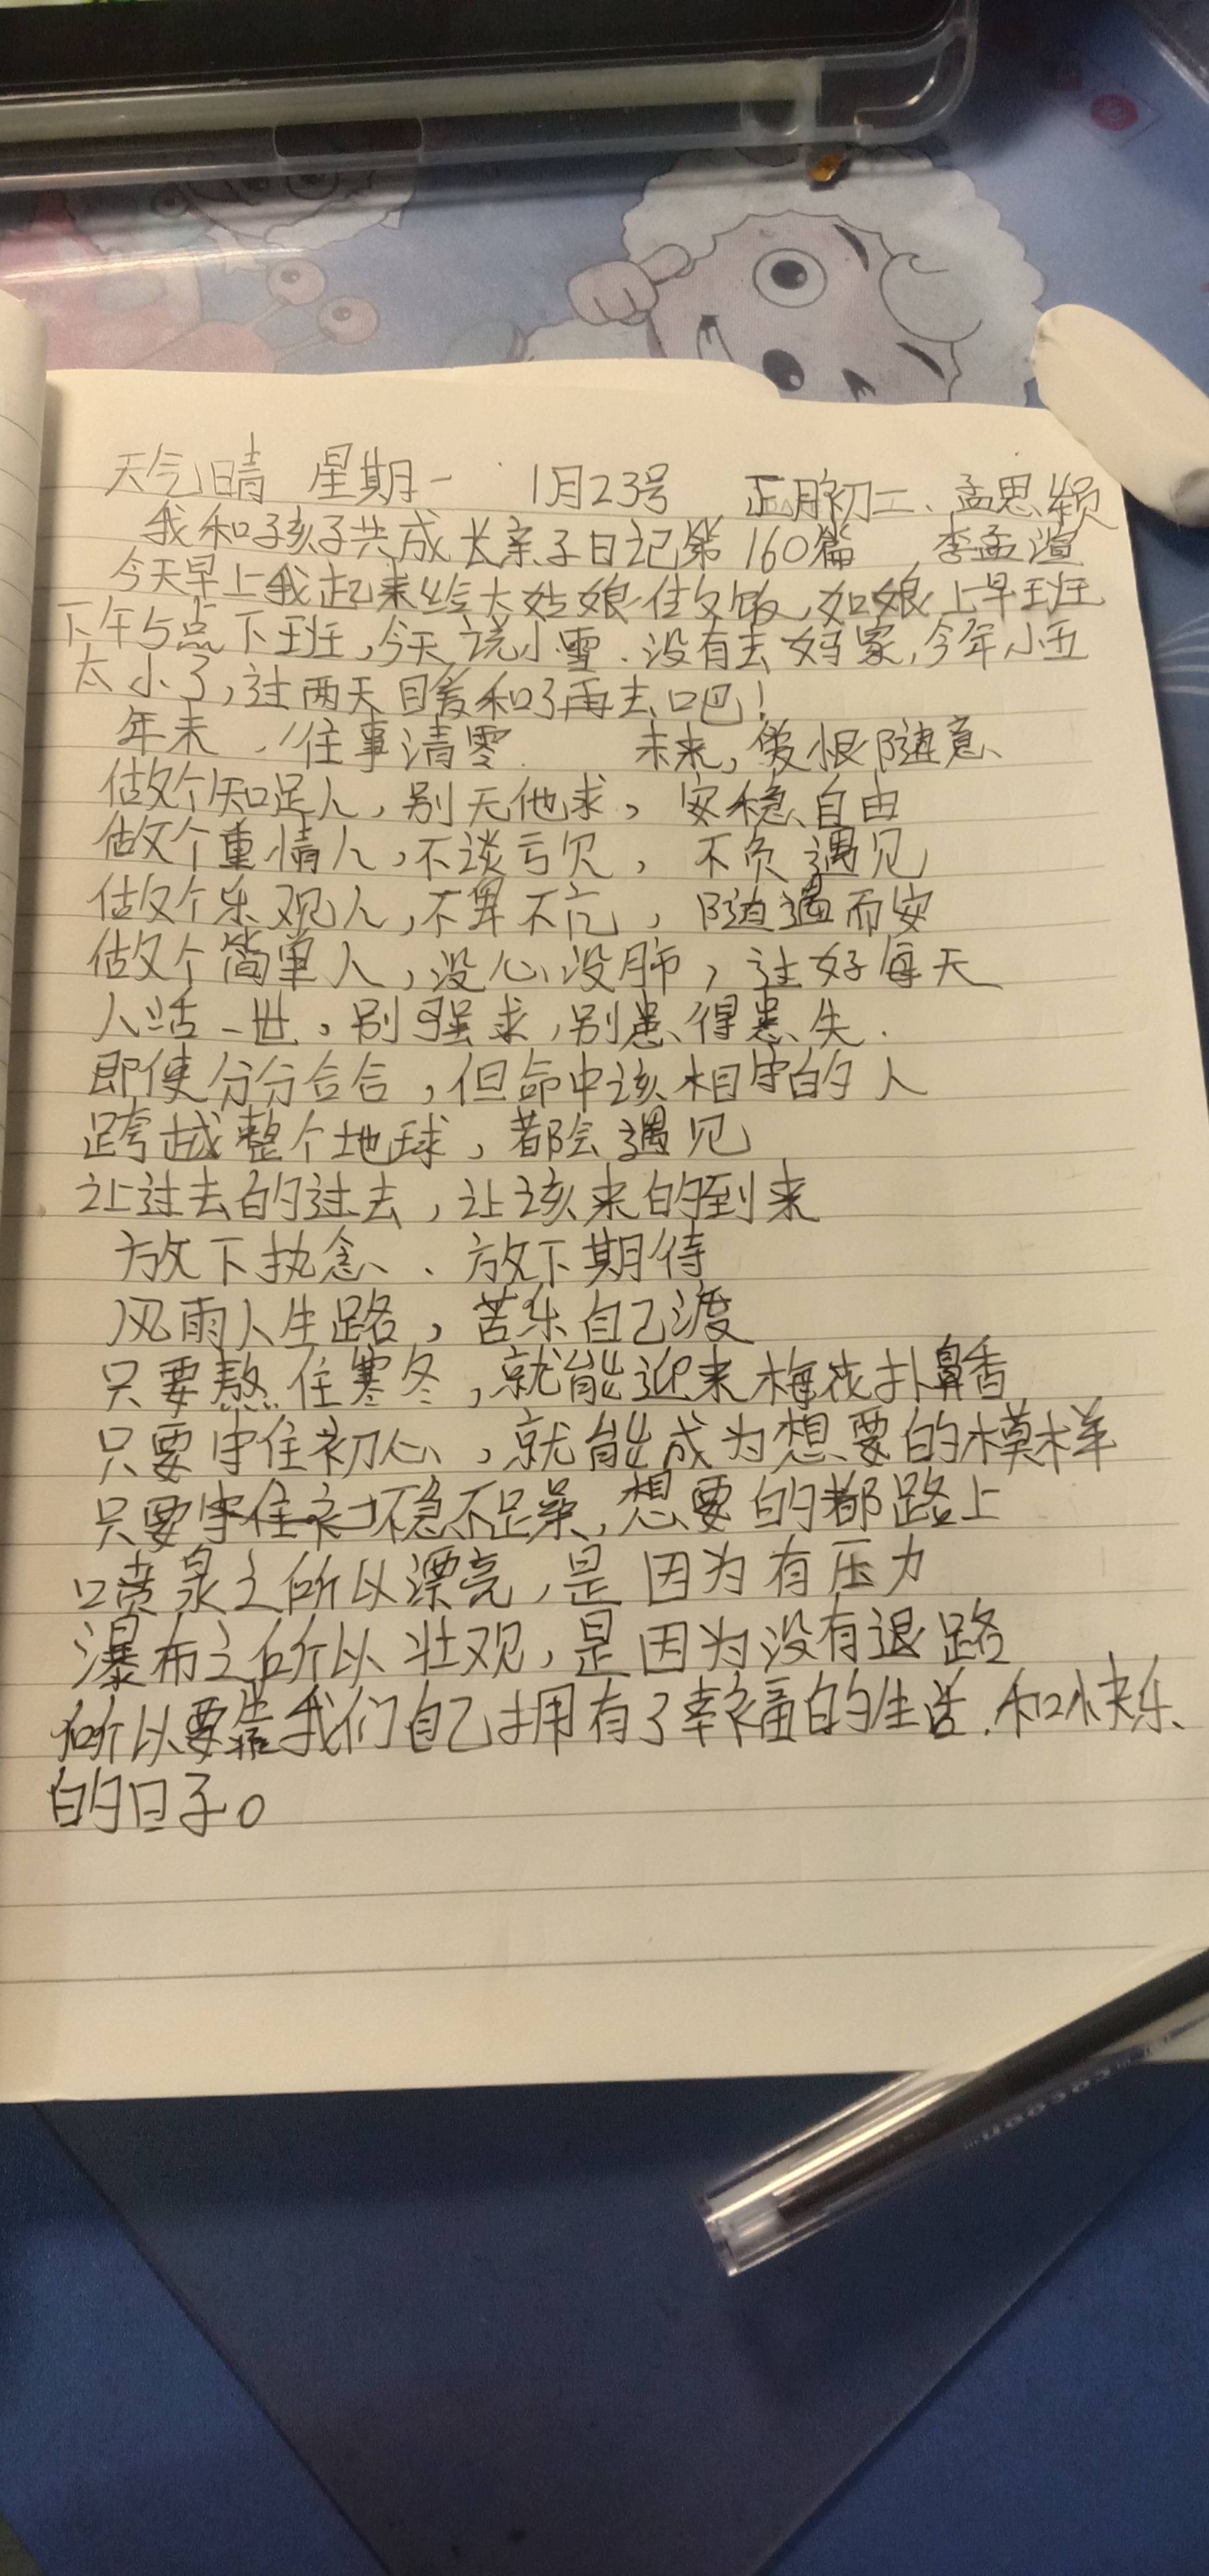 天气晴 星期一 1月23号 正月初二、孟思颖
我和孩子共成长亲子日记第160篇 李孟渲
今天早上我起来给大姑娘做饭,姑娘上早班
下午5点下班,今天说小雪.没有去妈家,今年小五
太小了,过两天暖和了再去吧!
年末,往事清零. 未来,爱恨随意、
做个知足人,别无他求,安稳自由
做个重情人,不谈亏欠,不负遇见
做个乐观人,不卑不亢,随遇而安
做个简单人,没心没肺,过好每天
人活一世,别强求,别患得患失.
即使分分合合,但命中该相守的人
跨越整个地球,都会遇见
让过去的过去,让该来的到来
放下执念、放下期待
风雨人生路,苦乐自己渡
只要熬住寒冬,就能迎来梅花扑鼻香
只要守住初心,就能成为想要的模样
只要守住初不急不躁,想要的都路上
喷泉之所以漂亮,是因为有压力
瀑布之所以壮观,是因为没有退路
所以要靠我们自己拥有了幸福的生活.和快乐、
的日子。
COCOON